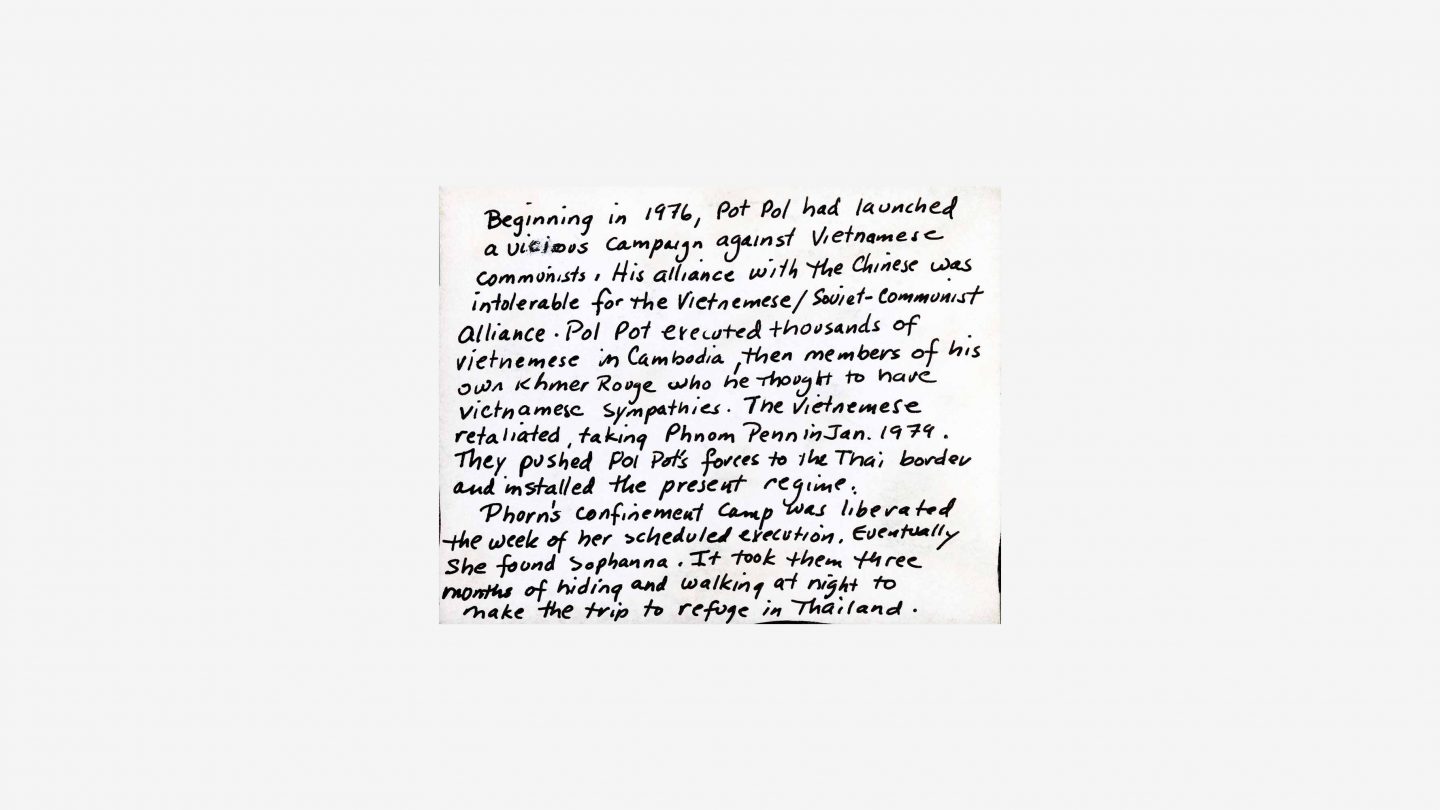 Beginning in 1976, Pot Pol had launched
a vicious campaign against Vietnamese
communists. His alliance with the Chinese was
intolerable for the Vietnemese/Soviet-Communist
Alliance. Pol Pot executed thousands of
vietnemese in Cambodia, then members of his
own Khmer Rouge who he thought to have
vietnamese sympathies. The Vietnemese
retaliated, taking Phnom Penn in Jan. 1979.
They pushed Pol Pot's forces to the Thai border
and installed the present regime.
Phorn's confinement camp was liberated
the week of her scheduled execution. Eventually
she found Sophanna. It took them three
months of hiding and walking at night to
make the trip to refuge in Thailand.